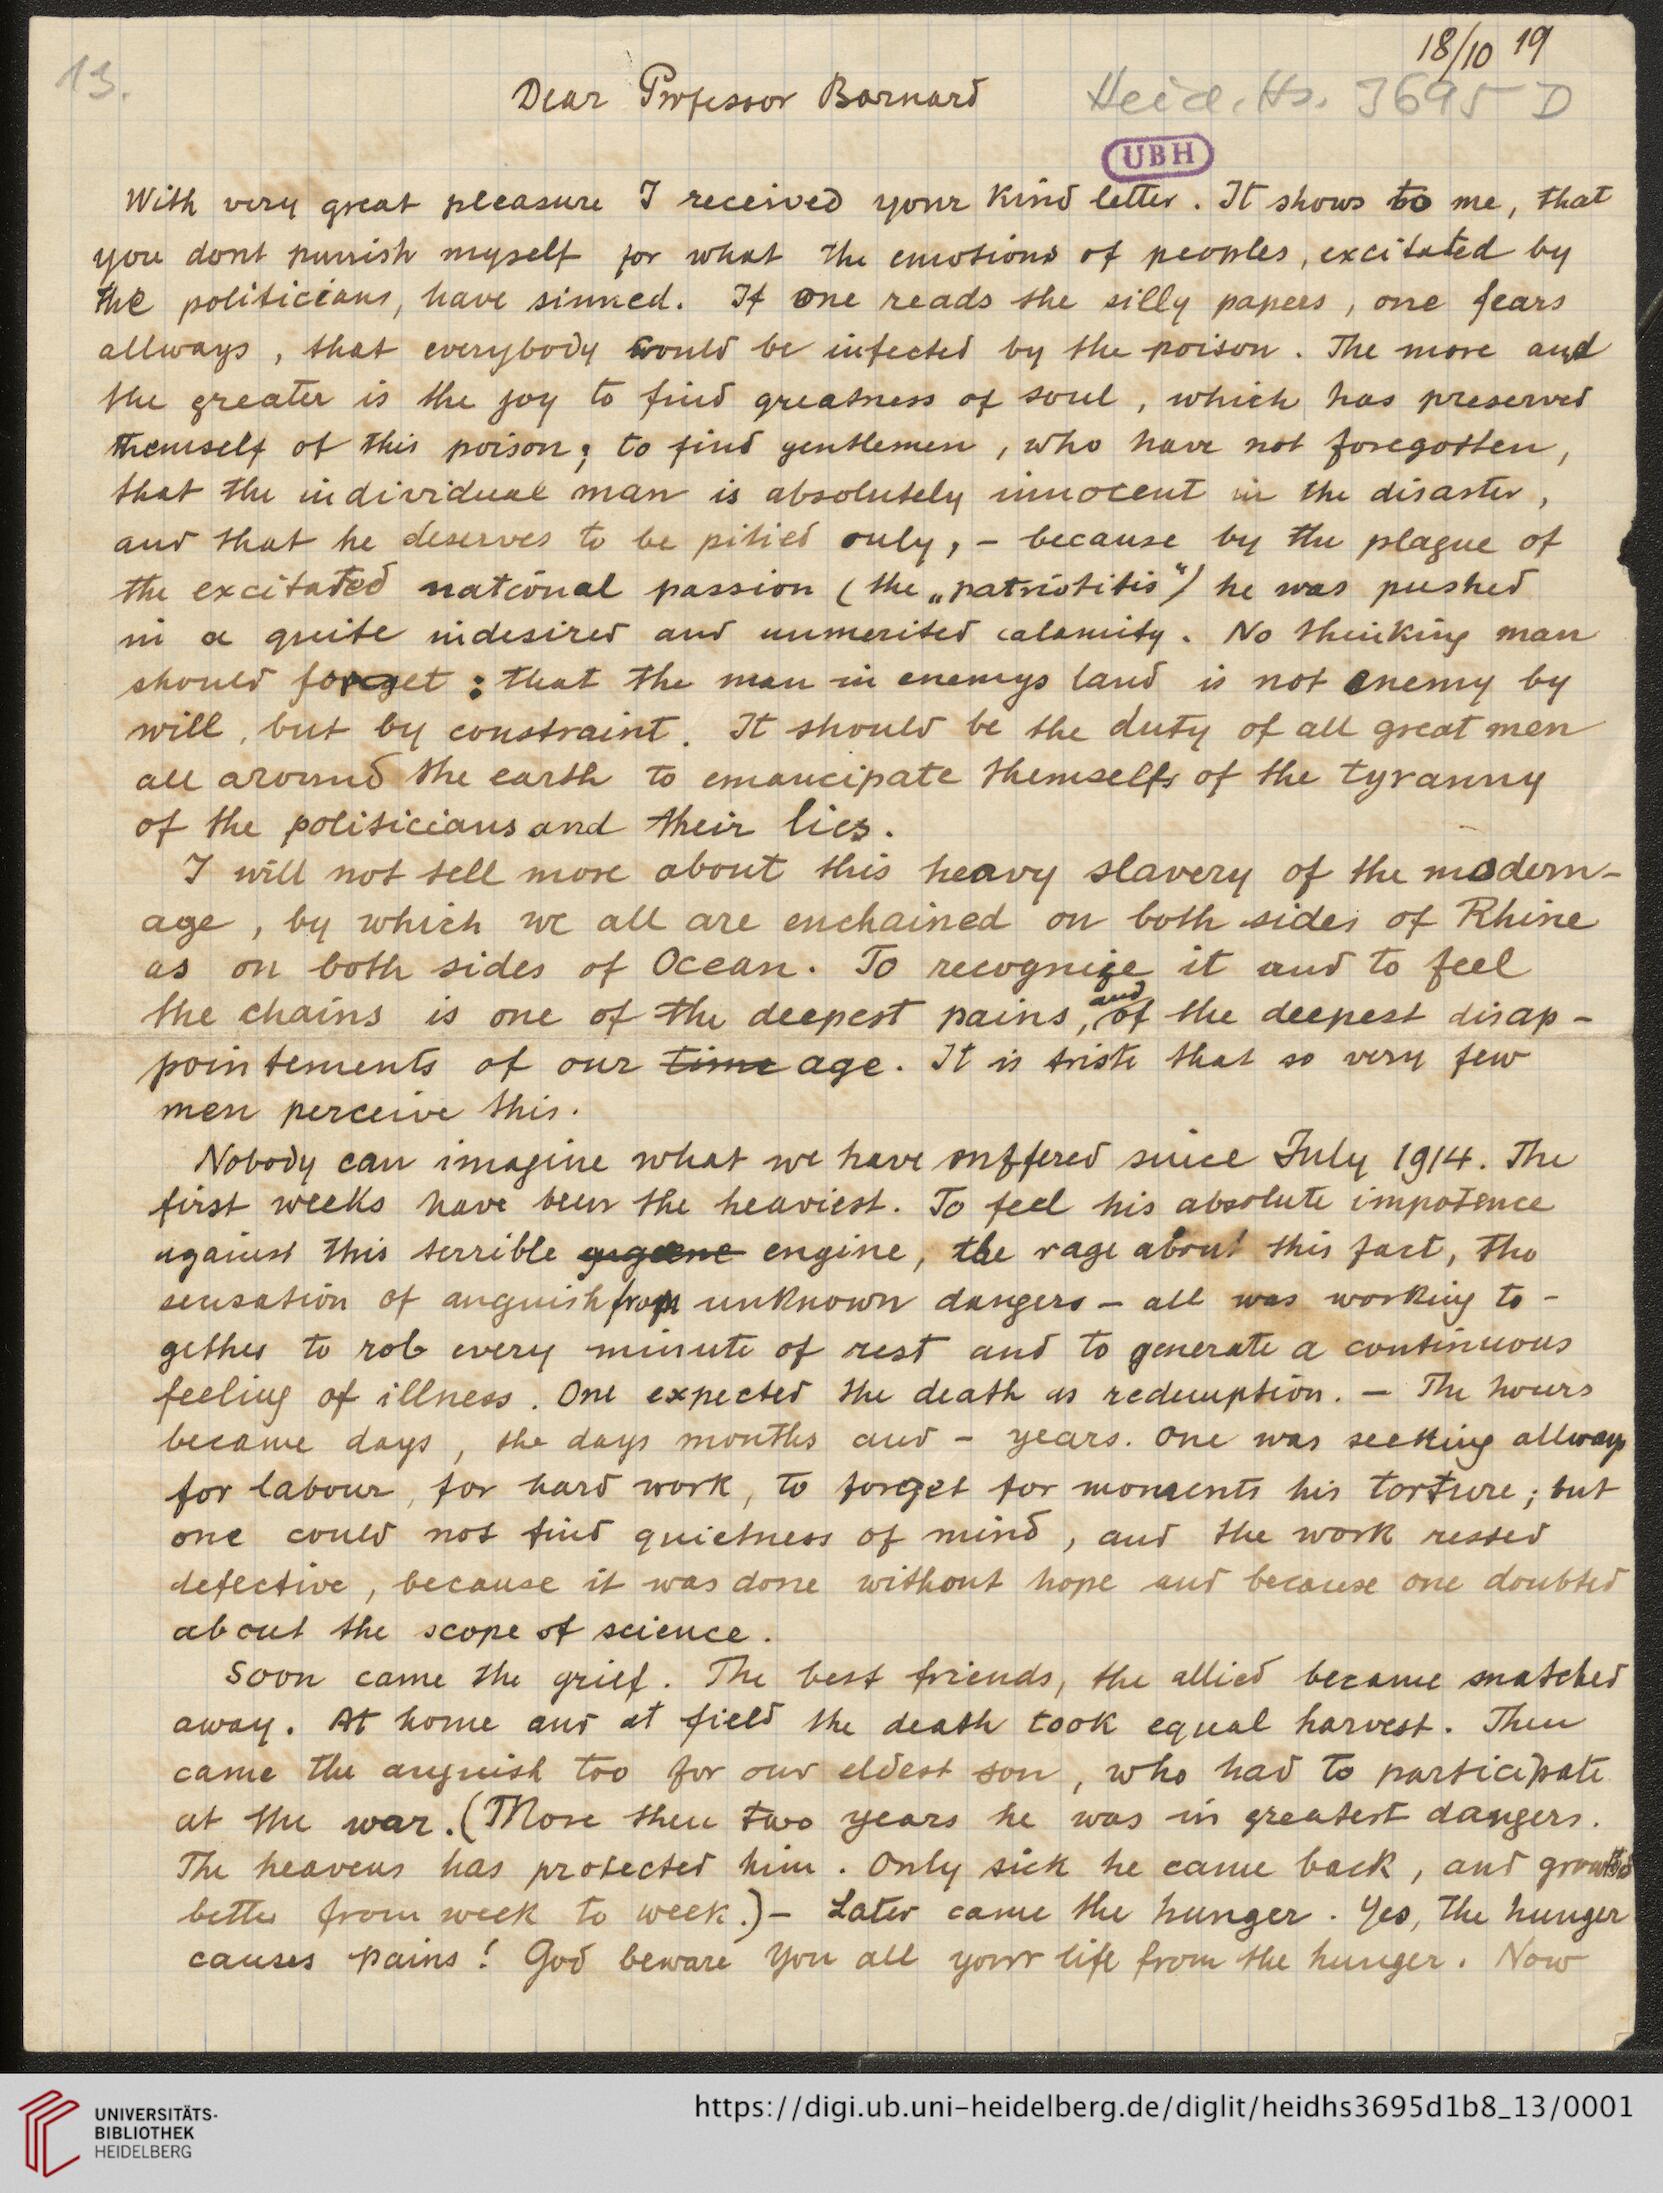 18/10 19
13.
Dear Professor Barnard
Heid. Hs. 3695 D
UBH
With very great pleasure I received your kind letter. It shows to me, that
you dont punish myself for what the emotions of peoples, excitated by
the politicians, have sinned. If one reads the silly papers, one fears
allways, that everybody would be infected by the poison. The more and
the greater is the joy to find greatness of soul, which has preserved
themself of this poison; to find gentlemen, who have not foregotten,
that the individual man is absolutely innocent in the disaster,
and that he deserves to be pitied only, – because by the plague of
the excitated national passion (the „patriotitis“) he was pushed
in a quite indesired and unmerited calamity. No thinking man
should forget: that the man in enemys land is not enemy by
will, but by constraint. It should be the duty of all great men
all around the earth to emancipate themselfs of the tyranny
of the politicians and their lies.
I will not tell more about this heavy slavery of the modern-
age, by which we all are enchained on both sides of Rhine
as on both sides of Ocean. To recognize it and to feel
the chains is one of the deepest pains, and of the deepest disap-
pointements of our time age. It is triste that so very few
men perceive this.
Nobody can imagine what we have suffered since July 1914. The
first weeks have been the heaviest. To feel his absolute impotence
against this terrible engine, the rage about this fact, the
sensation of anguish from unknown dangers – all was working to-
gether to rob every minute of rest and to generate a continuous
feeling of illness. One expected the death as redemption. – The hours
became days, the days months and – years. One was seeking allways
for labour, for hard work, to forget for moments his torture; but
one could not find quietness of mind, and the work rested
defective, because it was done without hope and because one doubted
about the scope of science.
Soon came the grief. The best friends, the allied became snatched
away. At home and at field the death took equal harvest. Then
came the anguish too for our eldest son, who had to participate
at the war. (More then two years he was in greatest dangers.
The heavens has protected him. Only sick he came back, and
better from week to week.) – Later came the hunger. Yes, the hunger
causes pains! God beware you all your life from the hunger. Now
UNIVERSITÄTS-
BIBLIOTHEK
HEIDELBERG
https://digi.ub.uni-heidelberg.de/diglit/heidhs3695d1b8_13/0001